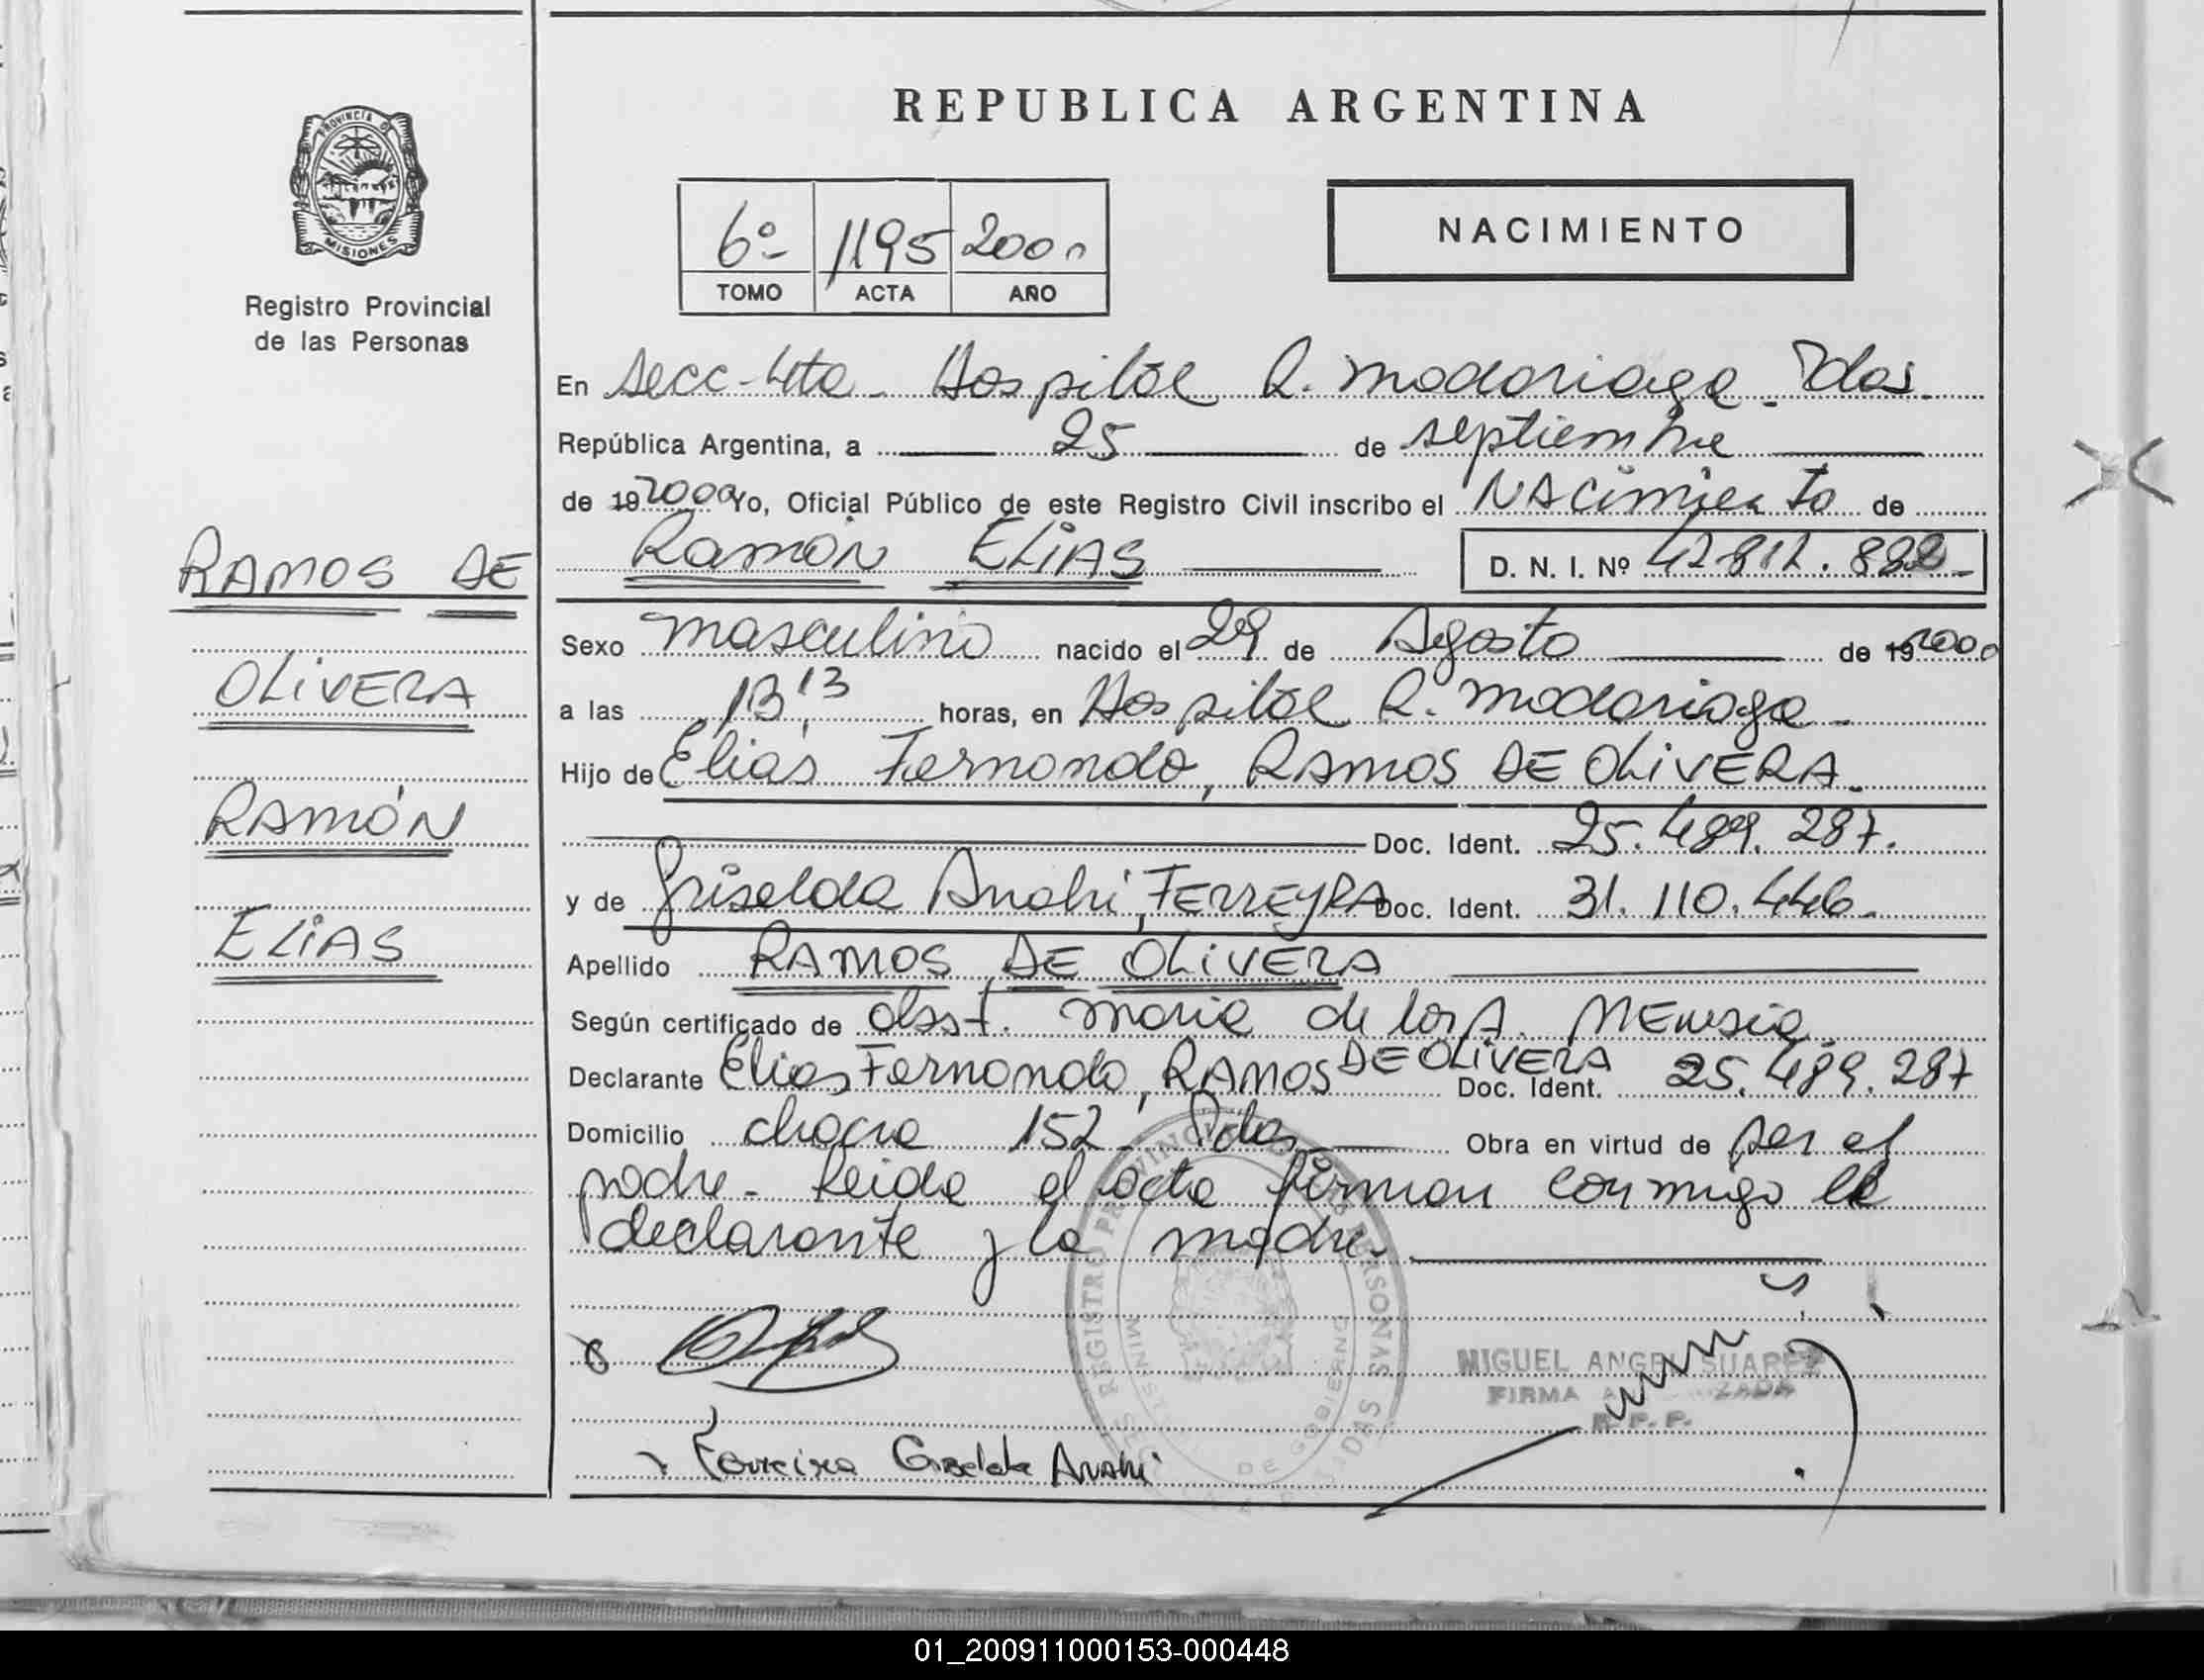 REPUBLICA ARGENTINA
PROVINCIA D
MISIONES
Registro Provincial
de las Personas
6º 1195 2000
TOMO ACTA AÑO
NACIMIENTO
En Secc-4ta- Hospital R. Madariaga- Pdas.
República Argentina, a 25 de septiembre
de 19 2000 Yo, Oficial Público de este Registro Civil inscribo el NACimiento de
Ramón ELiAS D. N. I. Nº 42.812.882-
RAMOS DE
OLiVERA
RAMÓN
ELiAS
Sexo masculino nacido el 29 de Agosto de 19 2000
a las 13,13 horas, en Hospital R. Madariaga-
Hijo de Elias Fernando, RAMOS DE OLiVERA-
Doc. Ident. 25.489.287.
y de Griselda Anahi, FERREYRA Doc. Ident. 31.110.446-
Apellido RAMOS DE OLiVERA
Según certificado de obst. Maria de los A. MEnesia
Declarante Elias Fernando, RAMOS DE OLiVERA Doc. Ident. 25.489.287
Domicilio chacra 152- Pdas, Obra en virtud de ser el
padre- Leida el acta firman conmigo el
declarante y la madre-
REGISTRO PROVINCIAL DE LAS PERSONAS
DE GOBIERNO
MIGUEL ANGEL SUAREZ
FIRMA
R. P. P.
Ferreira Griselda Anahi
01_200911000153-000448